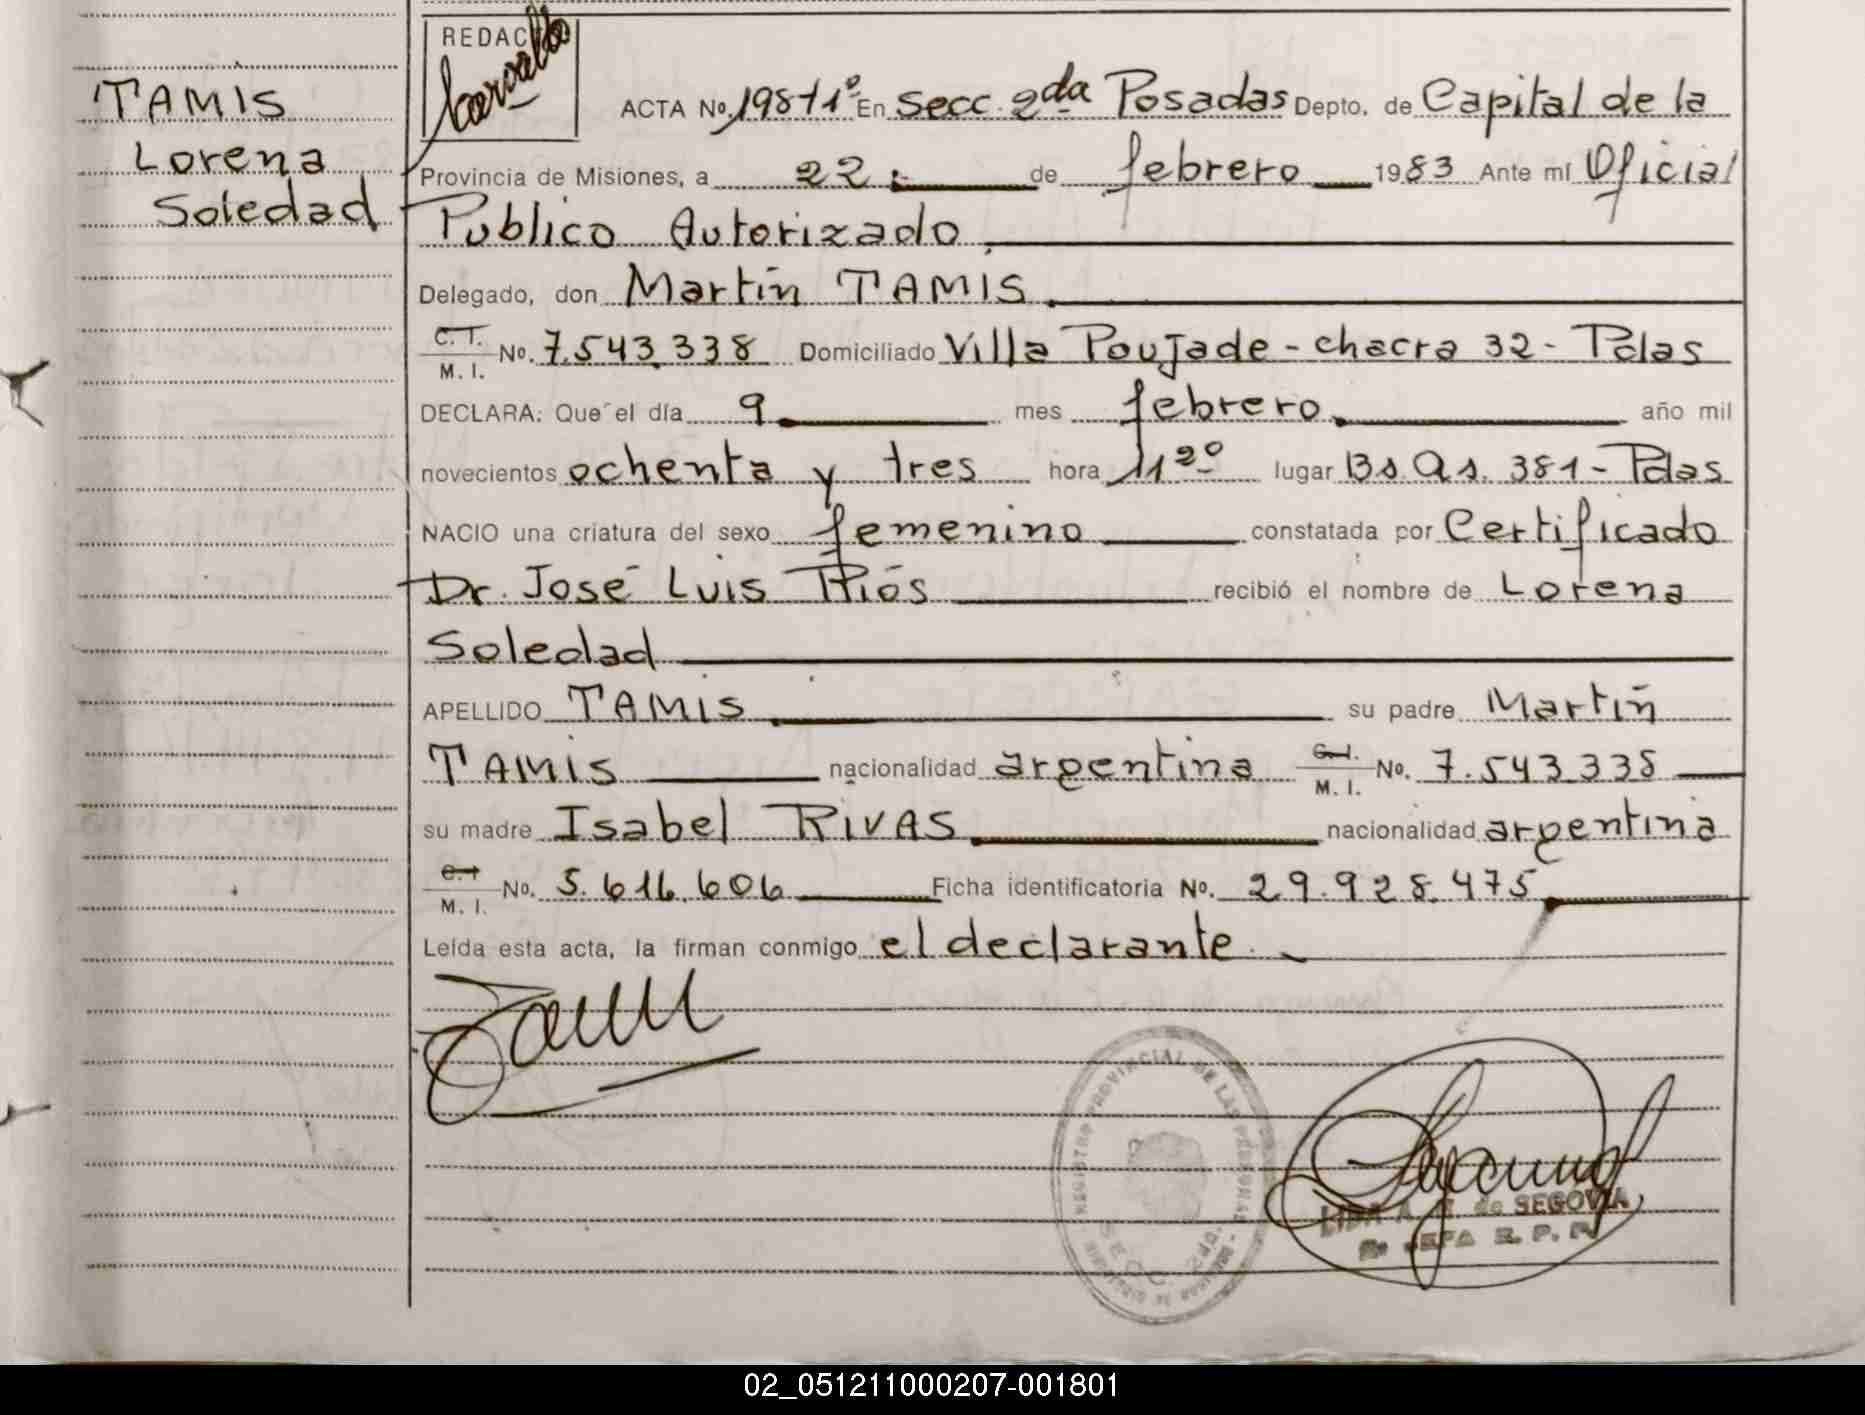 TAMIS
Lorena
Soledad
REDAC
Carvallo
ACTA Nº. 198 T 1º En Secc. 2da Posadas Depto. de Capital de la
Provincia de Misiones, a 22. de febrero 1983 Ante mí Oficial
Publico Autorizado.
Delegado, don Martín TAMIS.
C. I.
M. I. Nº. 7.543.338 Domiciliado Villa Poujade - chacra 32 - Pdas
DECLARA: Que el día 9 mes febrero. año mil
novecientos ochenta y tres hora 11 20 lugar Bs. As. 381 - Pdas
NACIO una criatura del sexo femenino constatada por Certificado
Dr. José Luis Ríos recibió el nombre de Lorena
Soledad
APELLIDO TAMIS su padre Martín
TAMIS nacionalidad argentina C. I.
M. I. Nº. 7.543.338
su madre Isabel RIVAS nacionalidad argentina
C. I.
M. I. Nº. 5.616.606 Ficha identificatoria Nº. 29.928.475
Leída esta acta, la firman conmigo el declarante.
REGISTRO PROVINCIAL DE LAS PERSONAS
SECC. 2
de SEGOVIA
JEFA R. P. P.
02_051211000207-001801